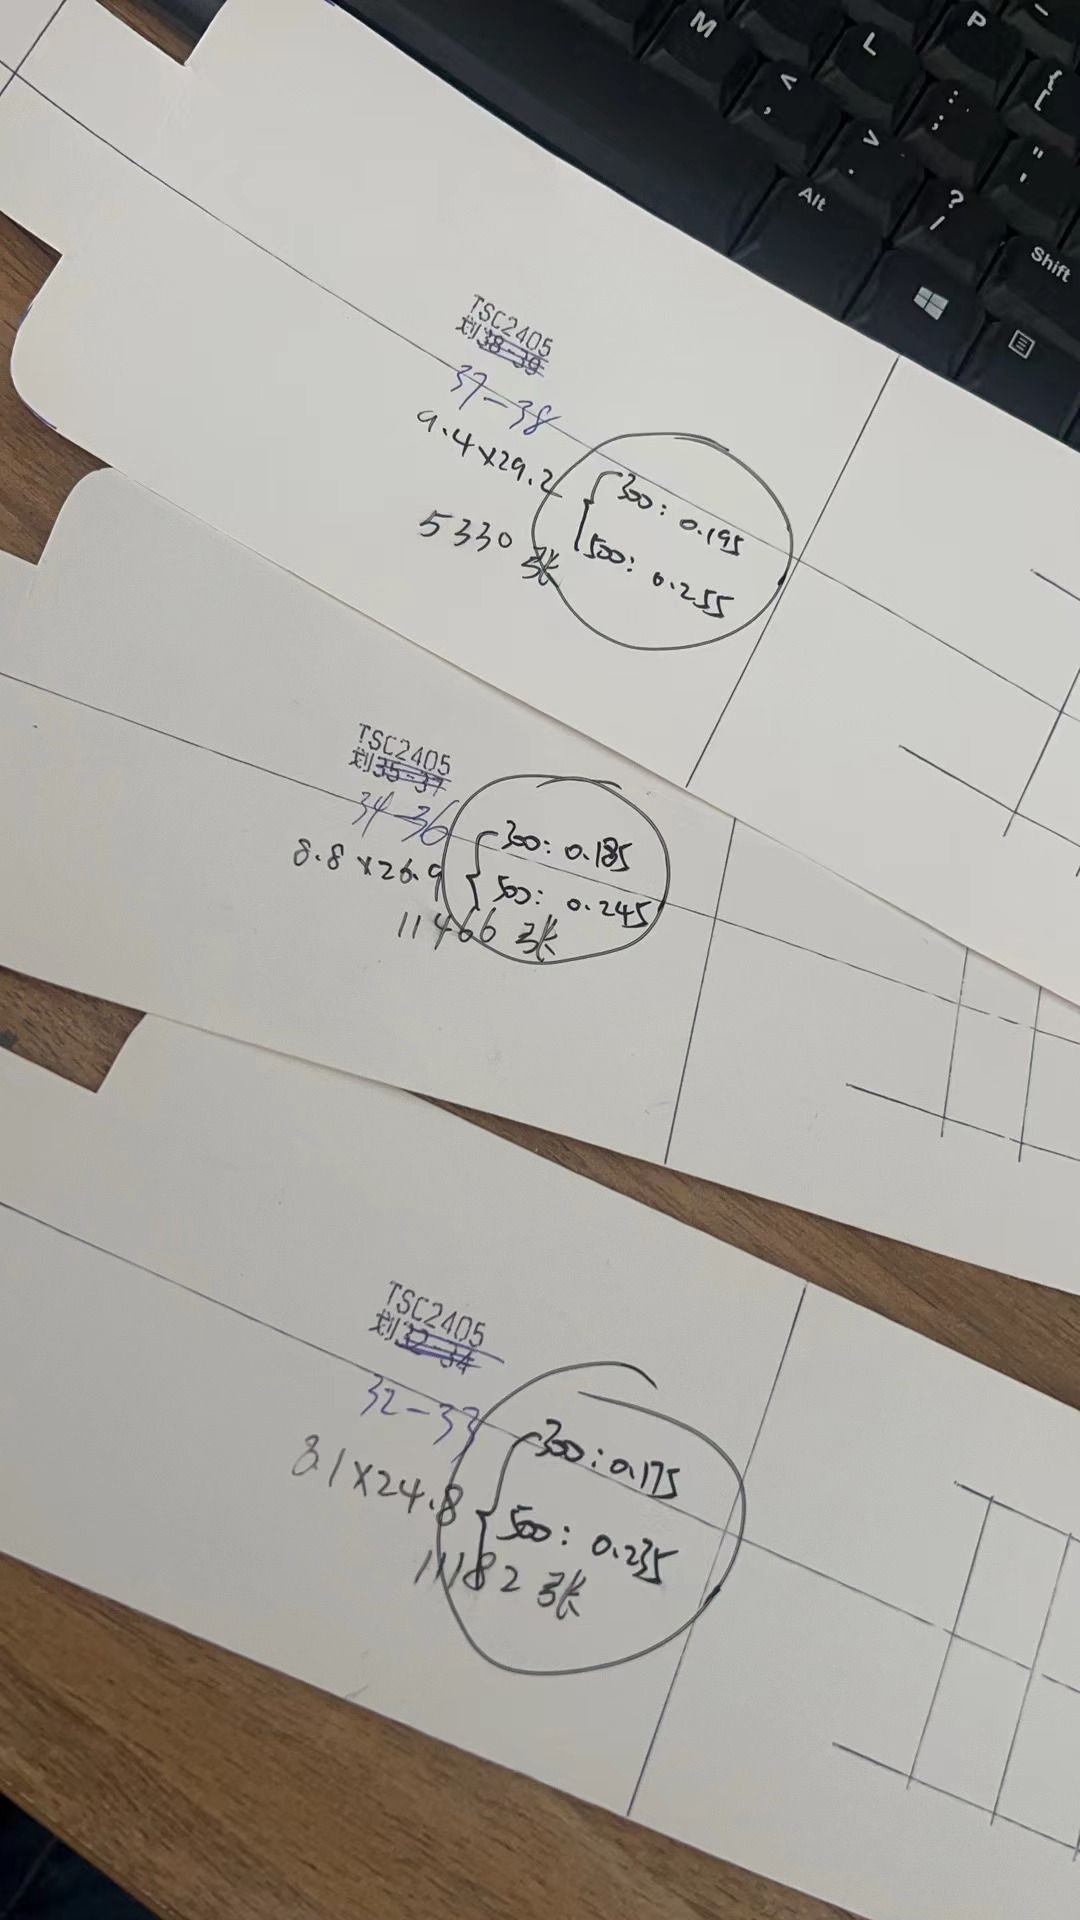 M
L
P
<
,
:
;
{
[
>
.
"
'
Alt
?
/
Shift
TSC2405
划38-39
37-38
9.4×29.2
300: 0.195
500: 0.255
5330张
TSC2405
划35-37
34-36
8.8×26.9
300: 0.185
500: 0.245
11466张
TSC2405
划32-34
32-33
8.1×24.8
300: 0.175
500: 0.235
11182张